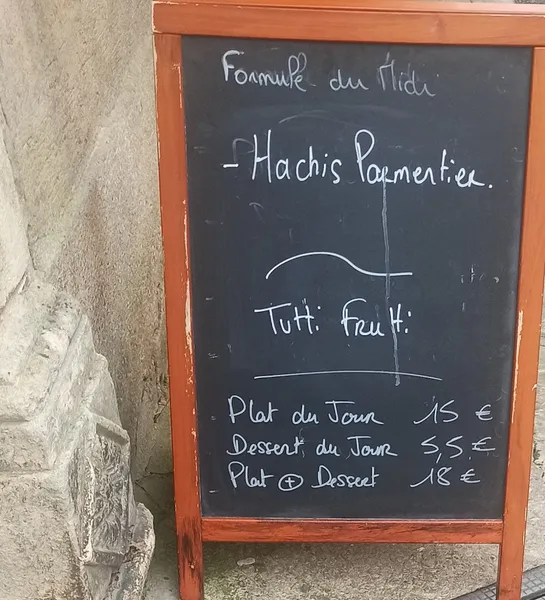 Formule du Midi
- Hachis Parmentier.
Tutti Frutti
Plat du Jour 15 €
Dessert du Jour 5,5 €
Plat + Dessert 18 €